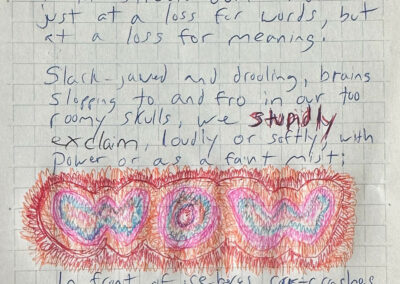 just at a loss for words, but
at a loss for meaning.
Slack-jawed and drooling, brains
slopping to and fro in our too
roomy skulls, we stupidly
exclaim, loudly or softly, with
power or as a faint mist:
WOW
In front of